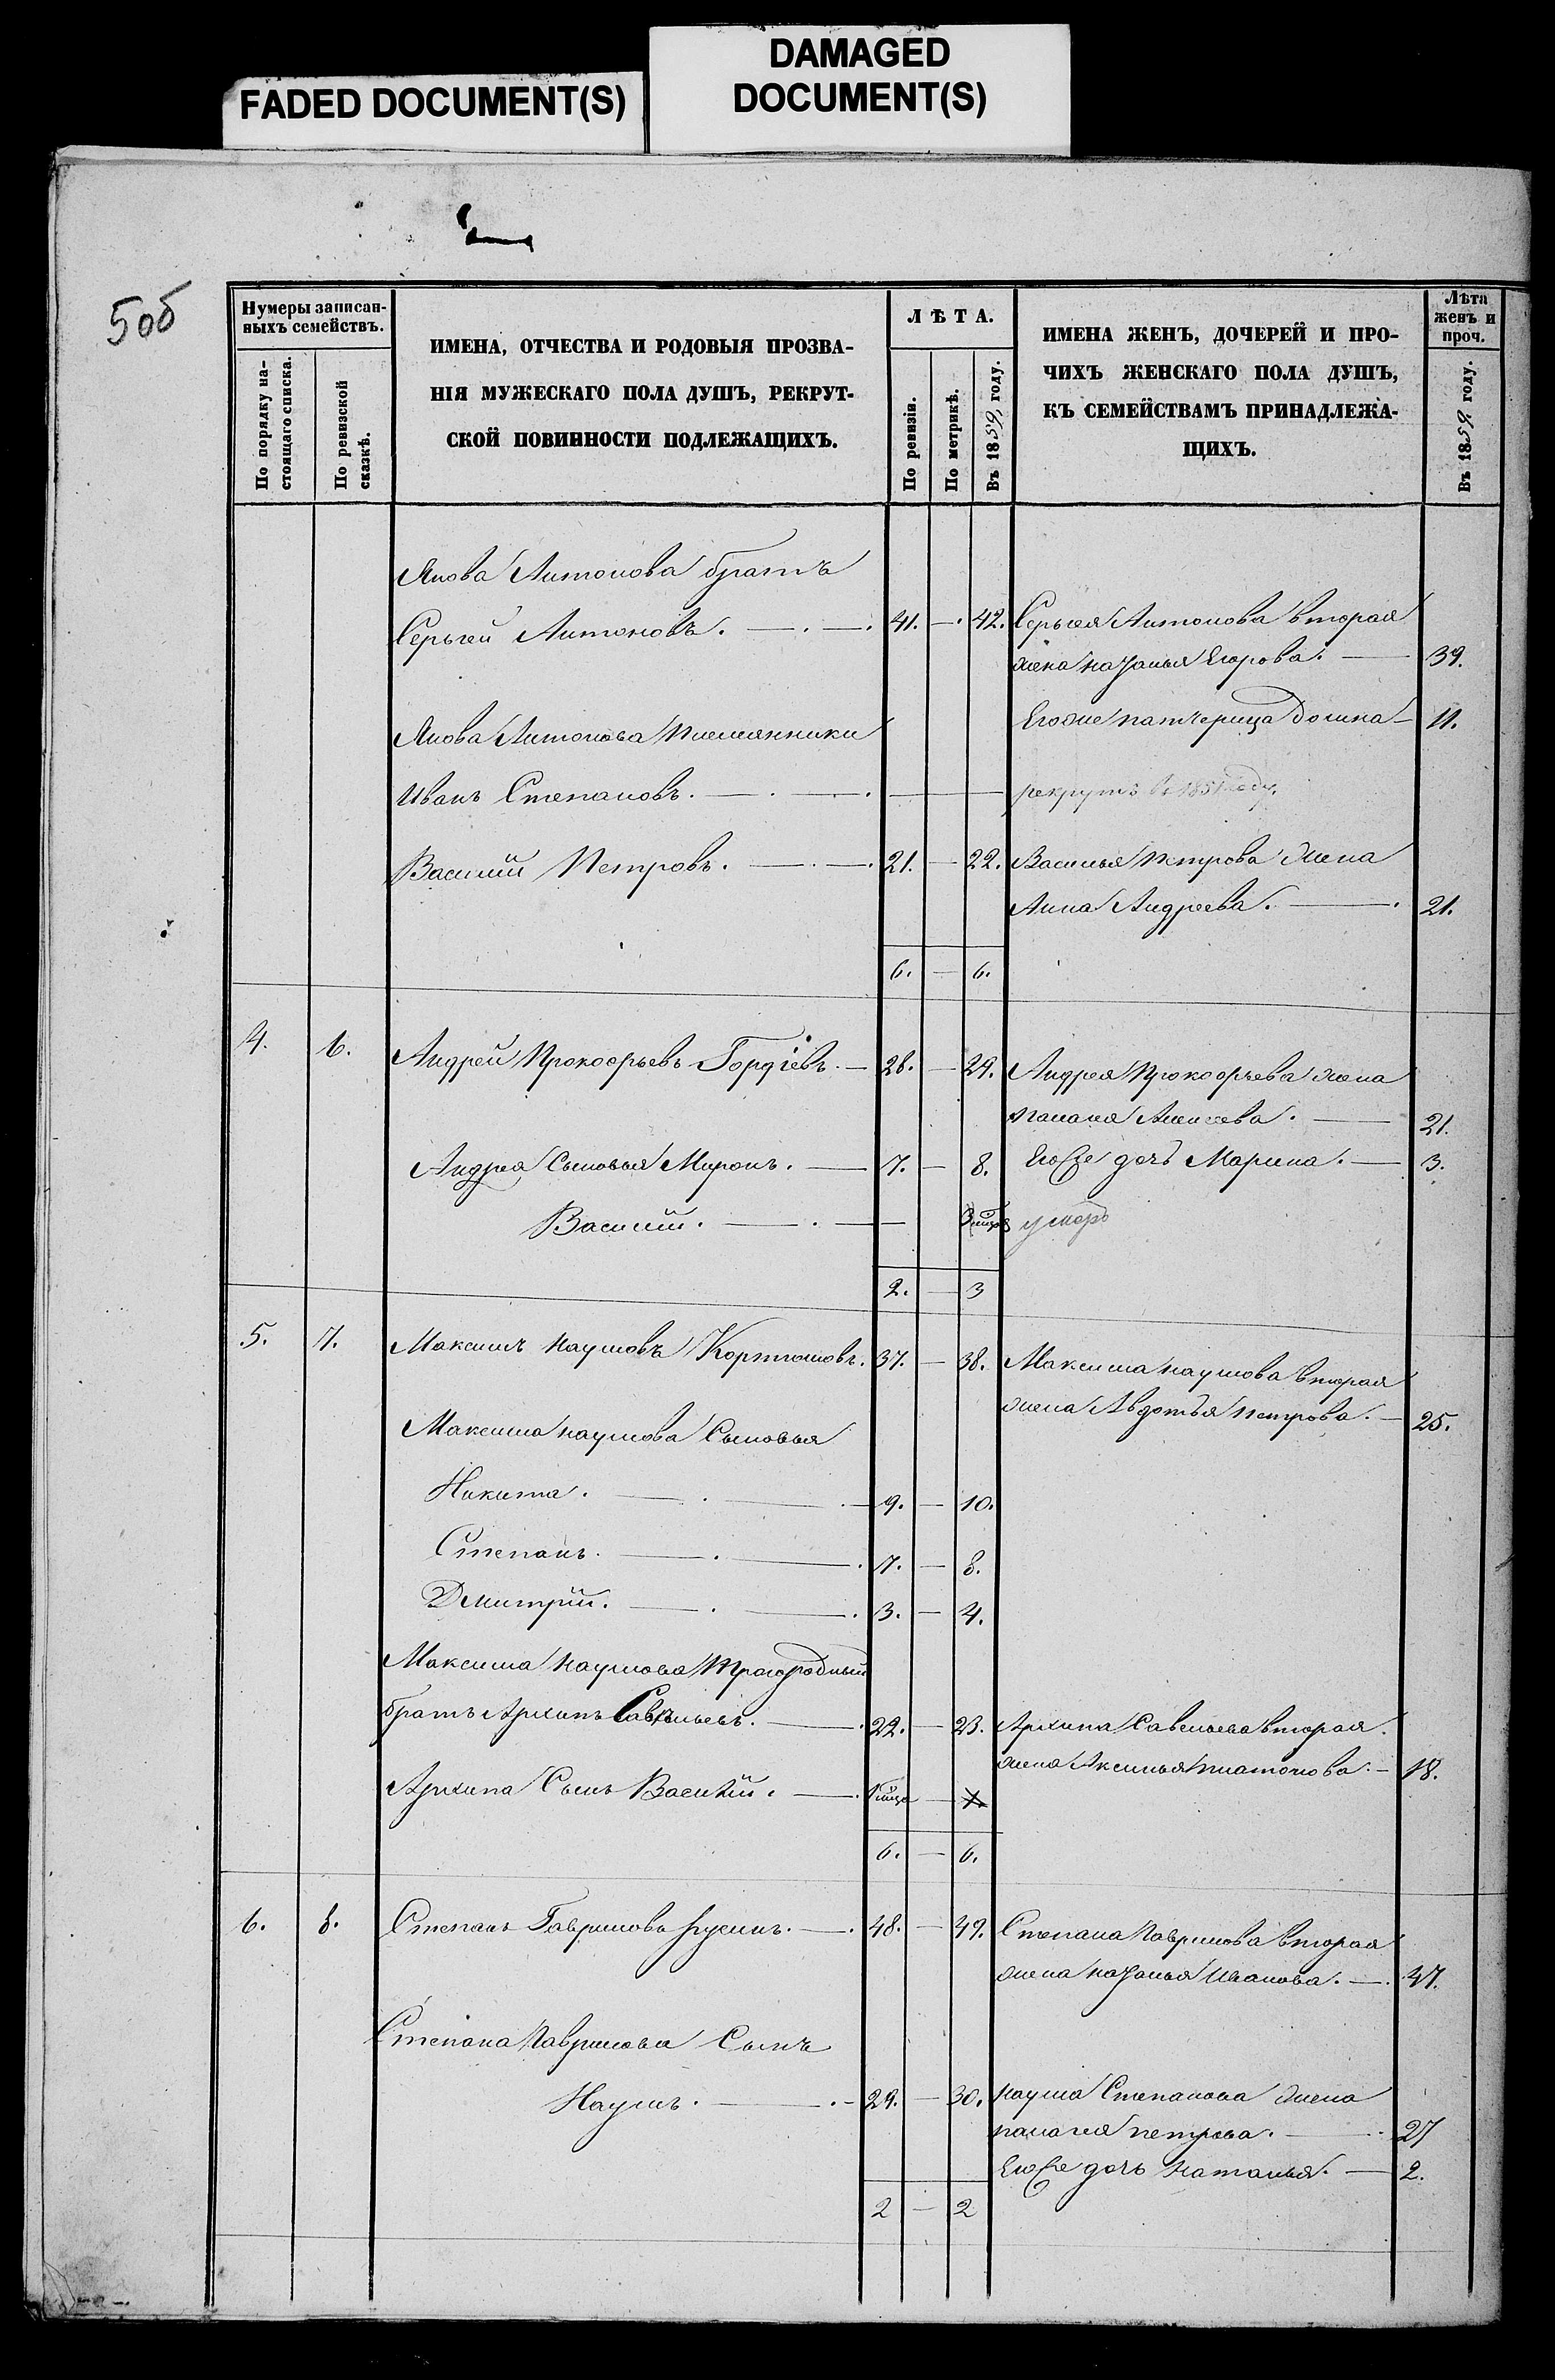 FADED DOCUMENT(S)
DAMAGED
DOCUMENT(S)
5об
Нумеры записан-
ныхъ семействъ.
По порядку на-
стоящаго списка.
По ревизской
сказкѣ.
ИМЕНА, ОТЧЕСТВА И РОДОВЫЯ ПРОЗВА-
НІЯ МУЖЕСКАГО ПОЛА ДУШЪ, РЕКРУТ-
СКОЙ ПОВИННОСТИ ПОДЛЕЖАЩИХЪ.
ЛѢТА.
По ревизіи.
По метрикѣ.
Въ 1859 году.
ИМЕНА ЖЕНЪ, ДОЧЕРЕЙ И ПРО-
ЧИХЪ ЖЕНСКАГО ПОЛА ДУШЪ,
КЪ СЕМЕЙСТВАМЪ ПРИНАДЛЕЖА-
ЩИХЪ.
Лѣта
женъ и
проч.
Въ 1859 году.
Якова Антонова братъ
Сергей Антоновъ. — . — . 41. — . 42. Сергея Антонова вторая
жена наталья Егорова. — 39.
Якова Антонова племянники
Егоже патчерица домна — 11.
Иванъ Степановъ. — . — . — рекрутъ в 1851 году.
Василий Петровъ. — . — . 21. — 22. Василья петрова жена
Анна Андреева. — . 21.
6. — 6.
4. 6. Андрей Прокофьевъ Гордіевъ. — 28. — 29. Андрея Прокофьева жена
палагея Алексеева. — 21.
Андрея Сыновья Миронъ. — 7. — 8. Егоже дочь Марина. — 3.
Василий. — . — умеръ
2. — 3
5. 7. Максимъ наумовъ 37. — 38. Максима наумова вторая
жена Авдотья петрова. — 25.
Максима наумова Сыновья
Никита. — . — . — 9. — 10.
Степанъ. — . — . 7. — 8.
Дмитрий. — . — . 3. — 4.
Максима наумова троюродный
братъ Архипъ Савельевъ. — . 22. — 23. Архипа Савельева вторая
жена Аксинья платонова. — 18.
Архипа Сынъ Василий. — .
6. — 6.
6. 8. Степанъ Гавриловъ — . 48. — 49. Степана Гаврилова вторая
жена наталья Иванова. — . 47.
Степана Гаврилова Сынъ
Наумъ. — . — 29. — 30. наума Степанова жена
палагея петрова. — . 27
Егоже дочь наталья. — 2.
2 — 2